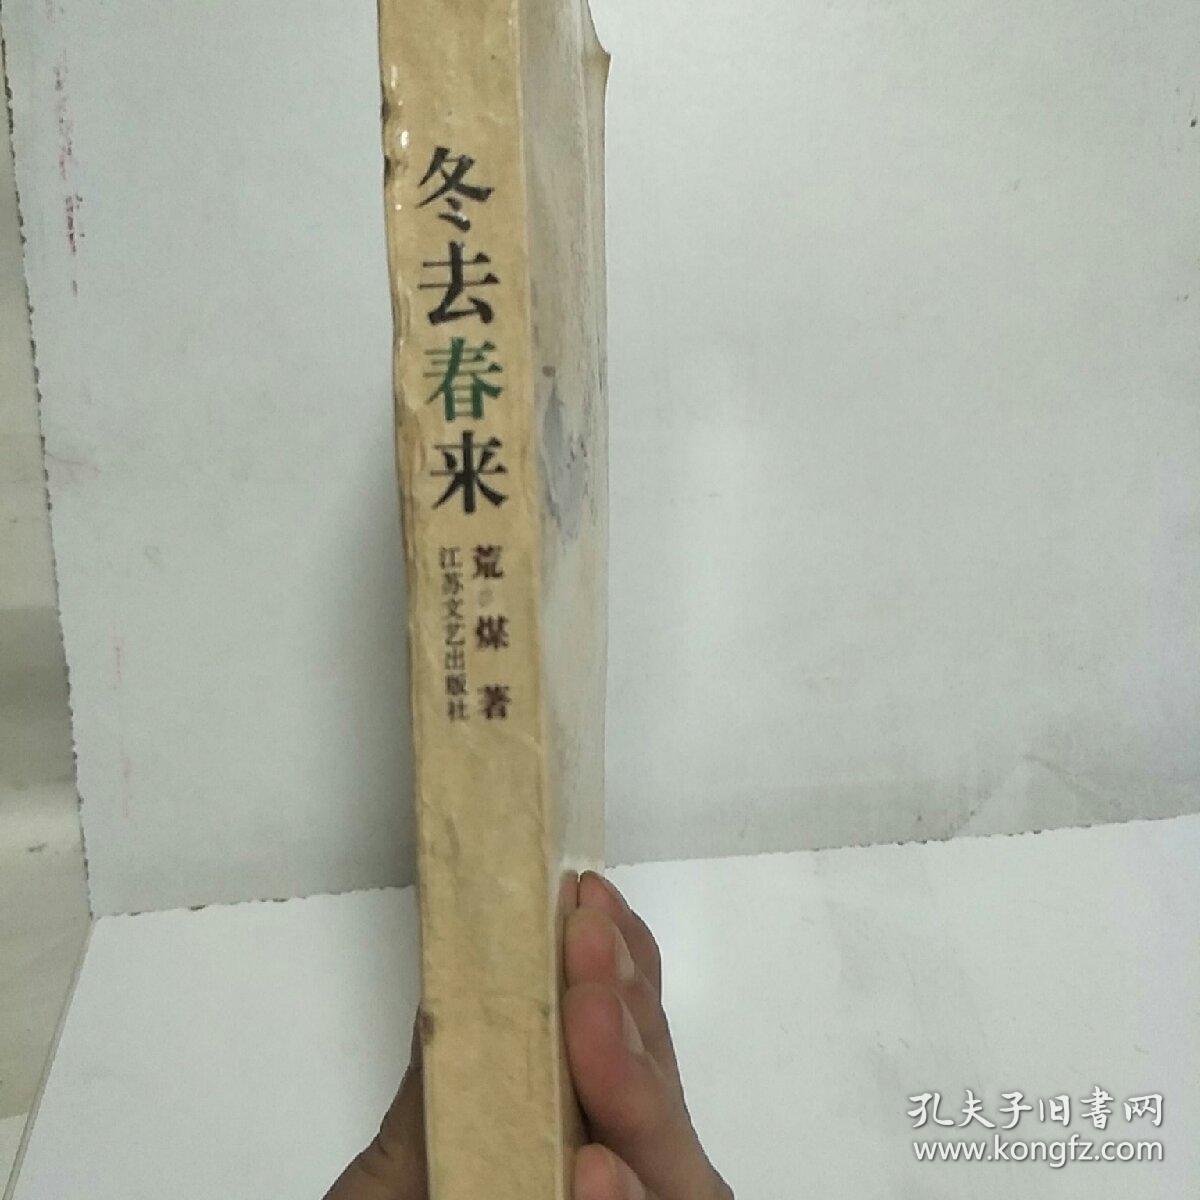 冬去春来
荒煤 著
江苏文艺出版社
孔夫子旧書网
www.kongfz.com